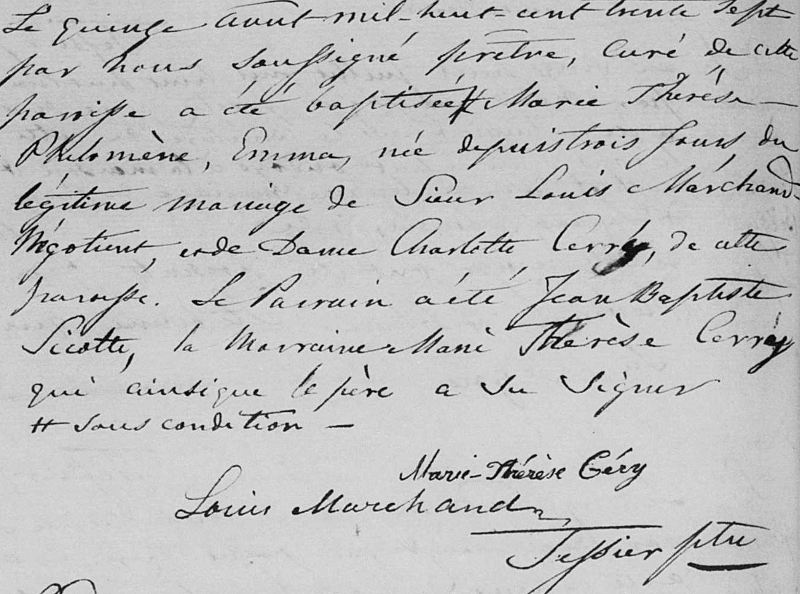 Le quinze Avut mil-huit-cent trente Sept
par nous soussigné prêtre, Curé de cette
paroisse a été baptisée # Marie Thérèse
Philomène, Emma, née depuis trois Jours du
légitime mariage de Sieur Louis Marchand
Négotient, et de Dame Charlotte Cerré, de cette
paroisse. Le Parrain a été Jean Baptiste
Sicotte, la Marraine Marie Thérèse Cerré
qui ainsi que le père a Su Signer
# sous condition —
Marie-Thérèse Céry
Louis Marchand
Tessier ptre